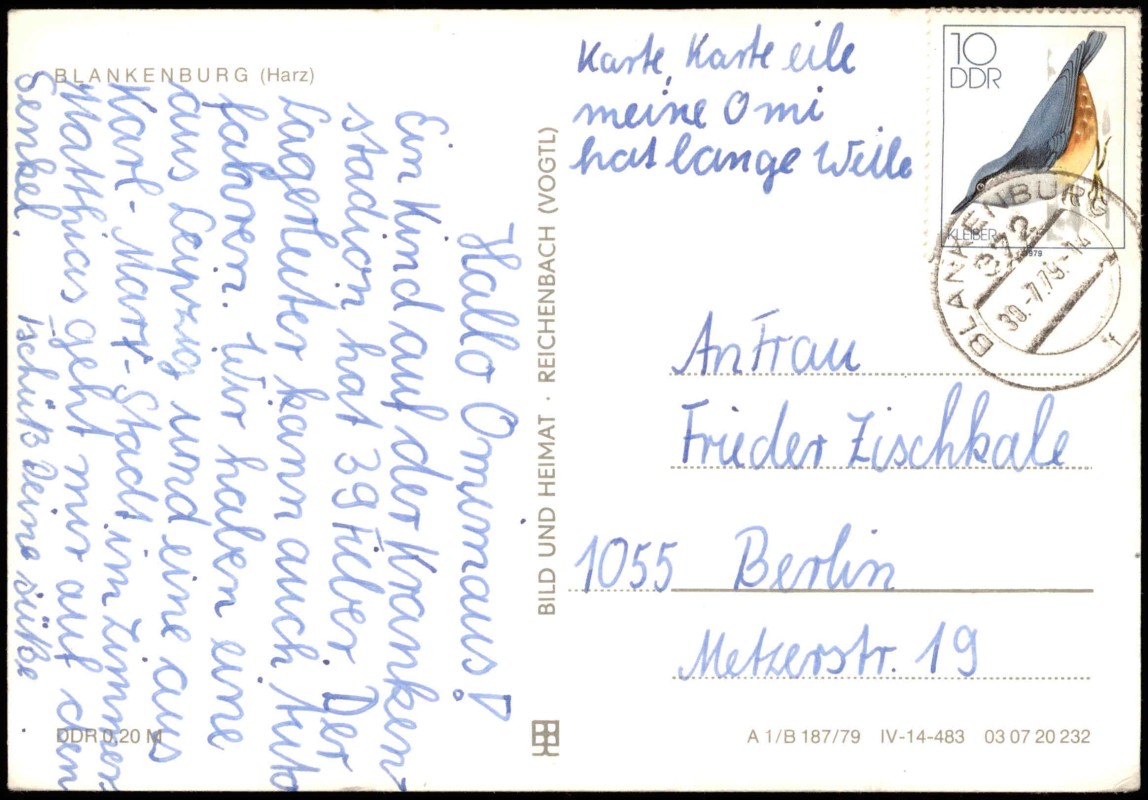 BLANKENBURG (Harz)
Hallo Omimaus!
Ein Kind auf der Kranken
stadion hat 39 Fieber. Der
Lagerleiter kann auch Auto
fahren. Wir haben eine
aus Leipzig und eine aus
Karl-Marx-Stadt im Zimmer
Matthias geht mir auf den
Senkel.
Tschüß Deine süße
DDR 0,20 M
BILD UND HEIMAT · REICHENBACH (VOGTL)
Karte, Karte eile
meine Omi
hat lange Weile
10
DDR
KLEIBER
1979
BLANKENBURG
372
30.-7.79.-14
f
An Frau
Frieder Zischkale
1055 Berlin
Metzerstr. 19
A 1/B 187/79 IV-14-483 03 07 20 232